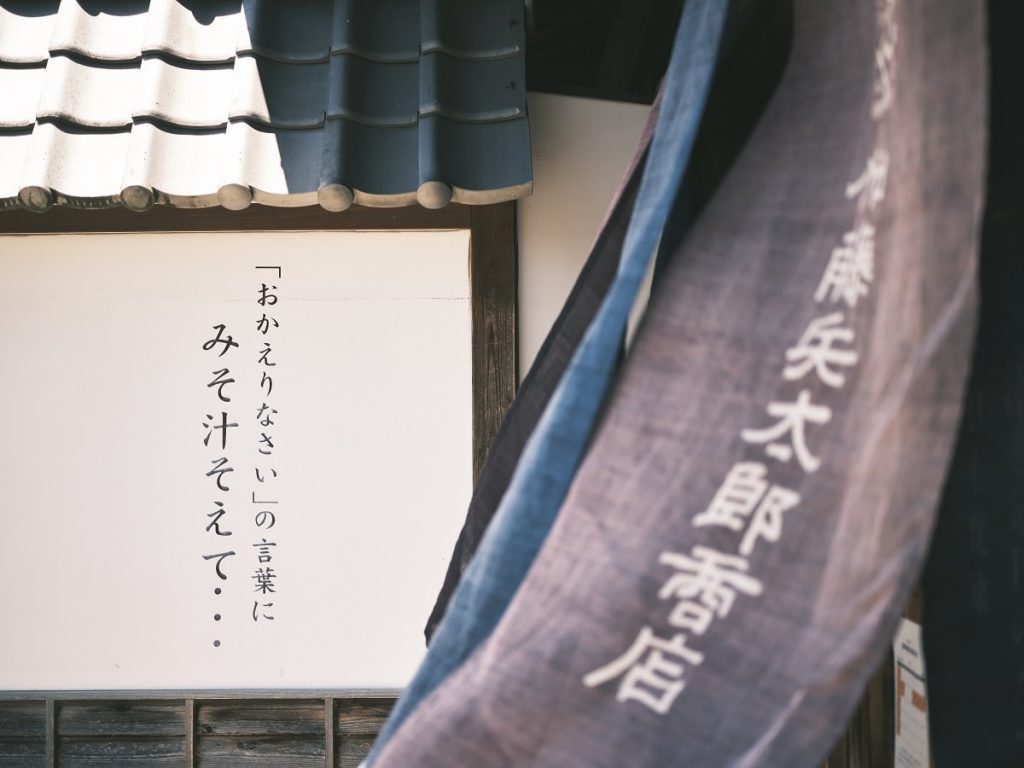 「おかえりなさい」の言葉に
みそ汁そえて・・・
加藤兵太郎商店